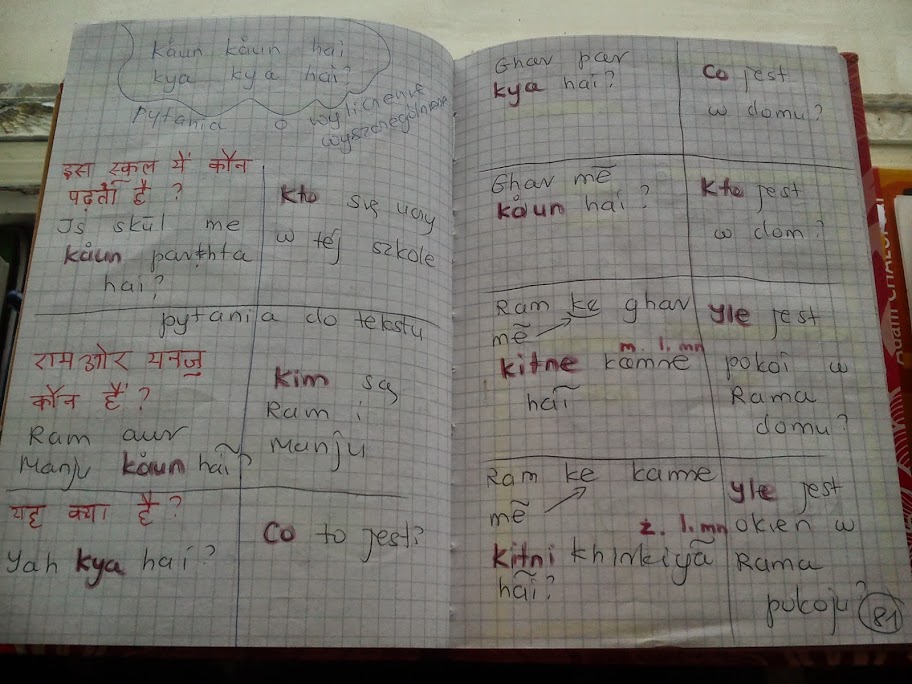 kåun kåun hai
kya kya hai?
Pytania o wyliczenie
wyszczególnienie
इस स्कल में कौन
पढ़ता है ?
Iṣ skūl me
kåun parṭhta
hai?
Kto się uczy
w tej szkole
pytania do tekstu
राम ओर मनजु
कौन हैं ?
Ram aur
Manju kåun hai ?
kim są
Ram i
Manju
यह क्या है ?
Yah kya hai ?
Co to jest?
Ghar par
kya hai ?
Co jest
w domu ?
Ghar mẽ
kåun hai ?
Kto jest
w dom ?
Ram ke ghar
mẽ
m. l. mn
kitne kamne
hãi
Yle jest
pokoi w
Rama
domu ?
Ram ke kame
mẽ
ż. l. mn
kitni khirkiyã
hãi ?
Yle jest
okien w
Rama
pokoju?
81
Adam CHALUP